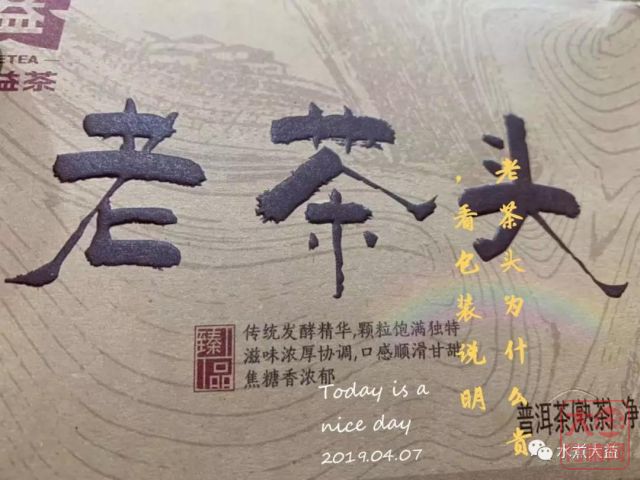 益
ETEA
益茶
老茶头
臻品
传统发酵精华,颗粒饱满独特
滋味浓厚协调,口感顺滑甘甜
焦糖香浓郁
老茶头为什么贵
,看包装说明
Today is a
nice day
2019.04.07
普洱茶(熟茶) 净
水煮大益